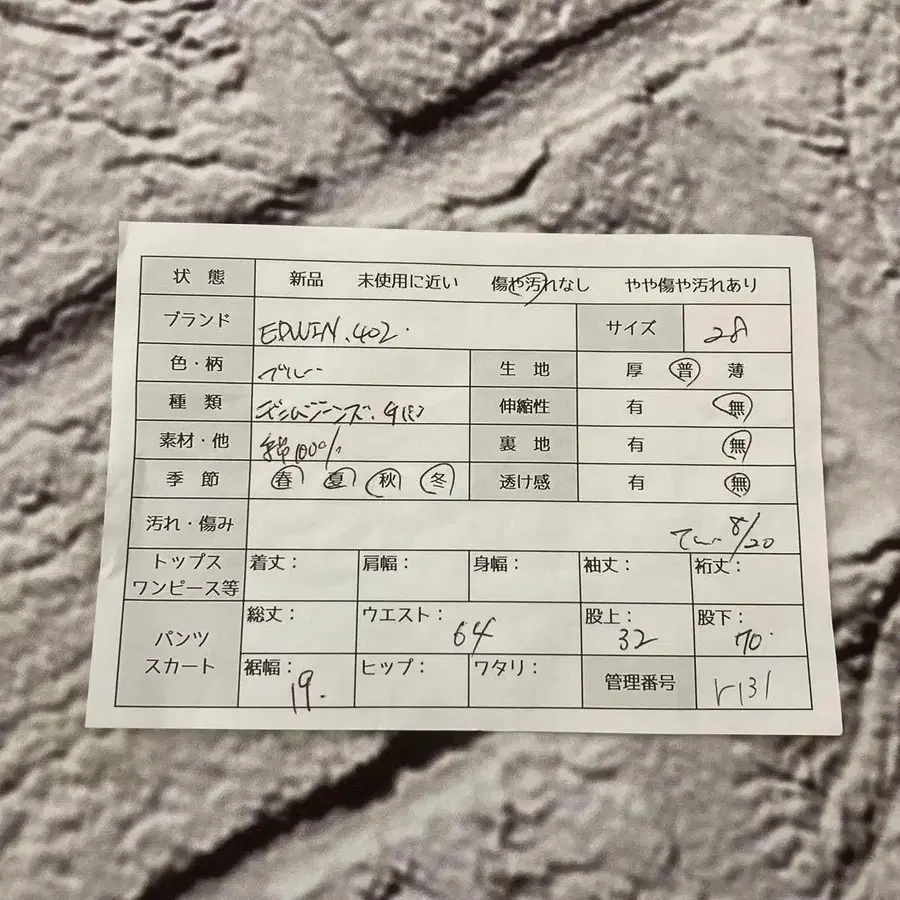 状態 新品 未使用に近い 傷や汚れなし やや傷や汚れあり
ブランド EDWIN.402. サイズ 28
色・柄 ブルー 生地 厚 普 薄
種類 デニムジーンズ. 伸縮性 有 無
素材・他 綿100% 裏地 有 無
季節 春 夏 秋 冬 透け感 有 無
汚れ・傷み 8/20
トップス ワンピース等 着丈: 肩幅: 身幅: 袖丈: 裄丈:
パンツ スカート 総丈: ウエスト: 64 股上: 32 股下: 70.
裾幅: 19. ヒップ: ワタリ: 管理番号 r131